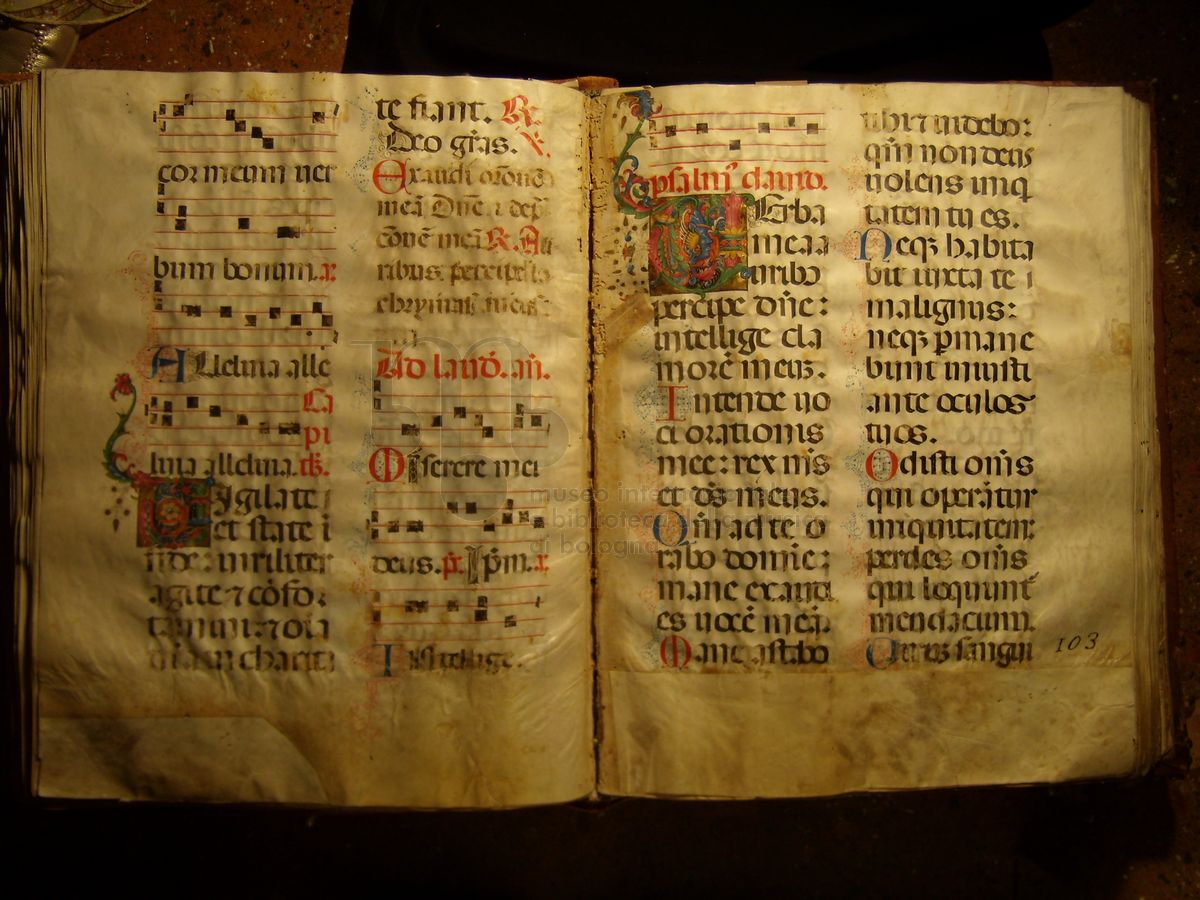 cor meum ver
bum bonum.
Alleluia alle
Ca
pi
luia alleluia.
Vigilate
et state i
fide: uiriliter
agite ⁊ cōfor
tamini: ⁊ oīa
uīa in charita
te fiant. R.
Deo grās. V.
Exaudi orōnē
meā Dn̄e. ⁊ dep̄
cōnē meā R. Au
ribus percipe la
chrymas meas.
Ad laud. an̄.
Miserere mei
deus. ps. Ip̄m.
Intellige.
psalm̄ dauid.
Verba
mea a
uribꝰ
percipe dn̄e:
intellige cla
morē meuz.
Intende uo
ci orationis
mee: rex m̄s
et ds̄ meus.
Qm̄ ad te o
rabo domīe:
mane exaud
es uocē meā.
Mane astabo
tibi ⁊ uidebo:
qm̄ non deus
uolens iniq
tatem tu es.
Neqꝫ habita
bit iuxta te
malignus:
neqꝫ pmane
bunt iniusti
ante oculos
tuos.
Odisti om̄s
qui operātur
iniquitatem:
perdes om̄s
qui loquunt̄
mendacium.
Uiruz sangui
103
museo inte
biblioteca
di bologna